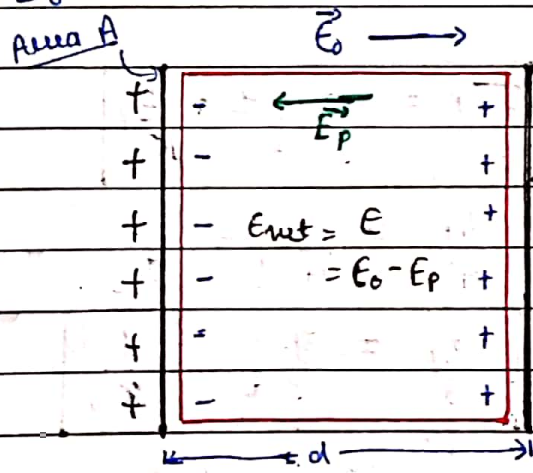 Area A
E₀
+ - + 
Eₚ
+ - +
+ - Enet = E +
+ - = E₀ - Eₚ +
+ - +
+ - +
d